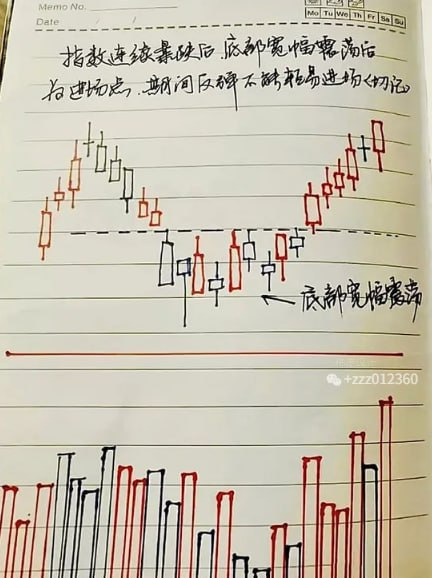 Memo No.
Mo Tu We Th Fr Sa Su
Date / /
指数连续暴跌后 底部宽幅震荡后
为进场点，期间反弹不能轻易进场《切记》
底部宽幅震荡
+zzz012360